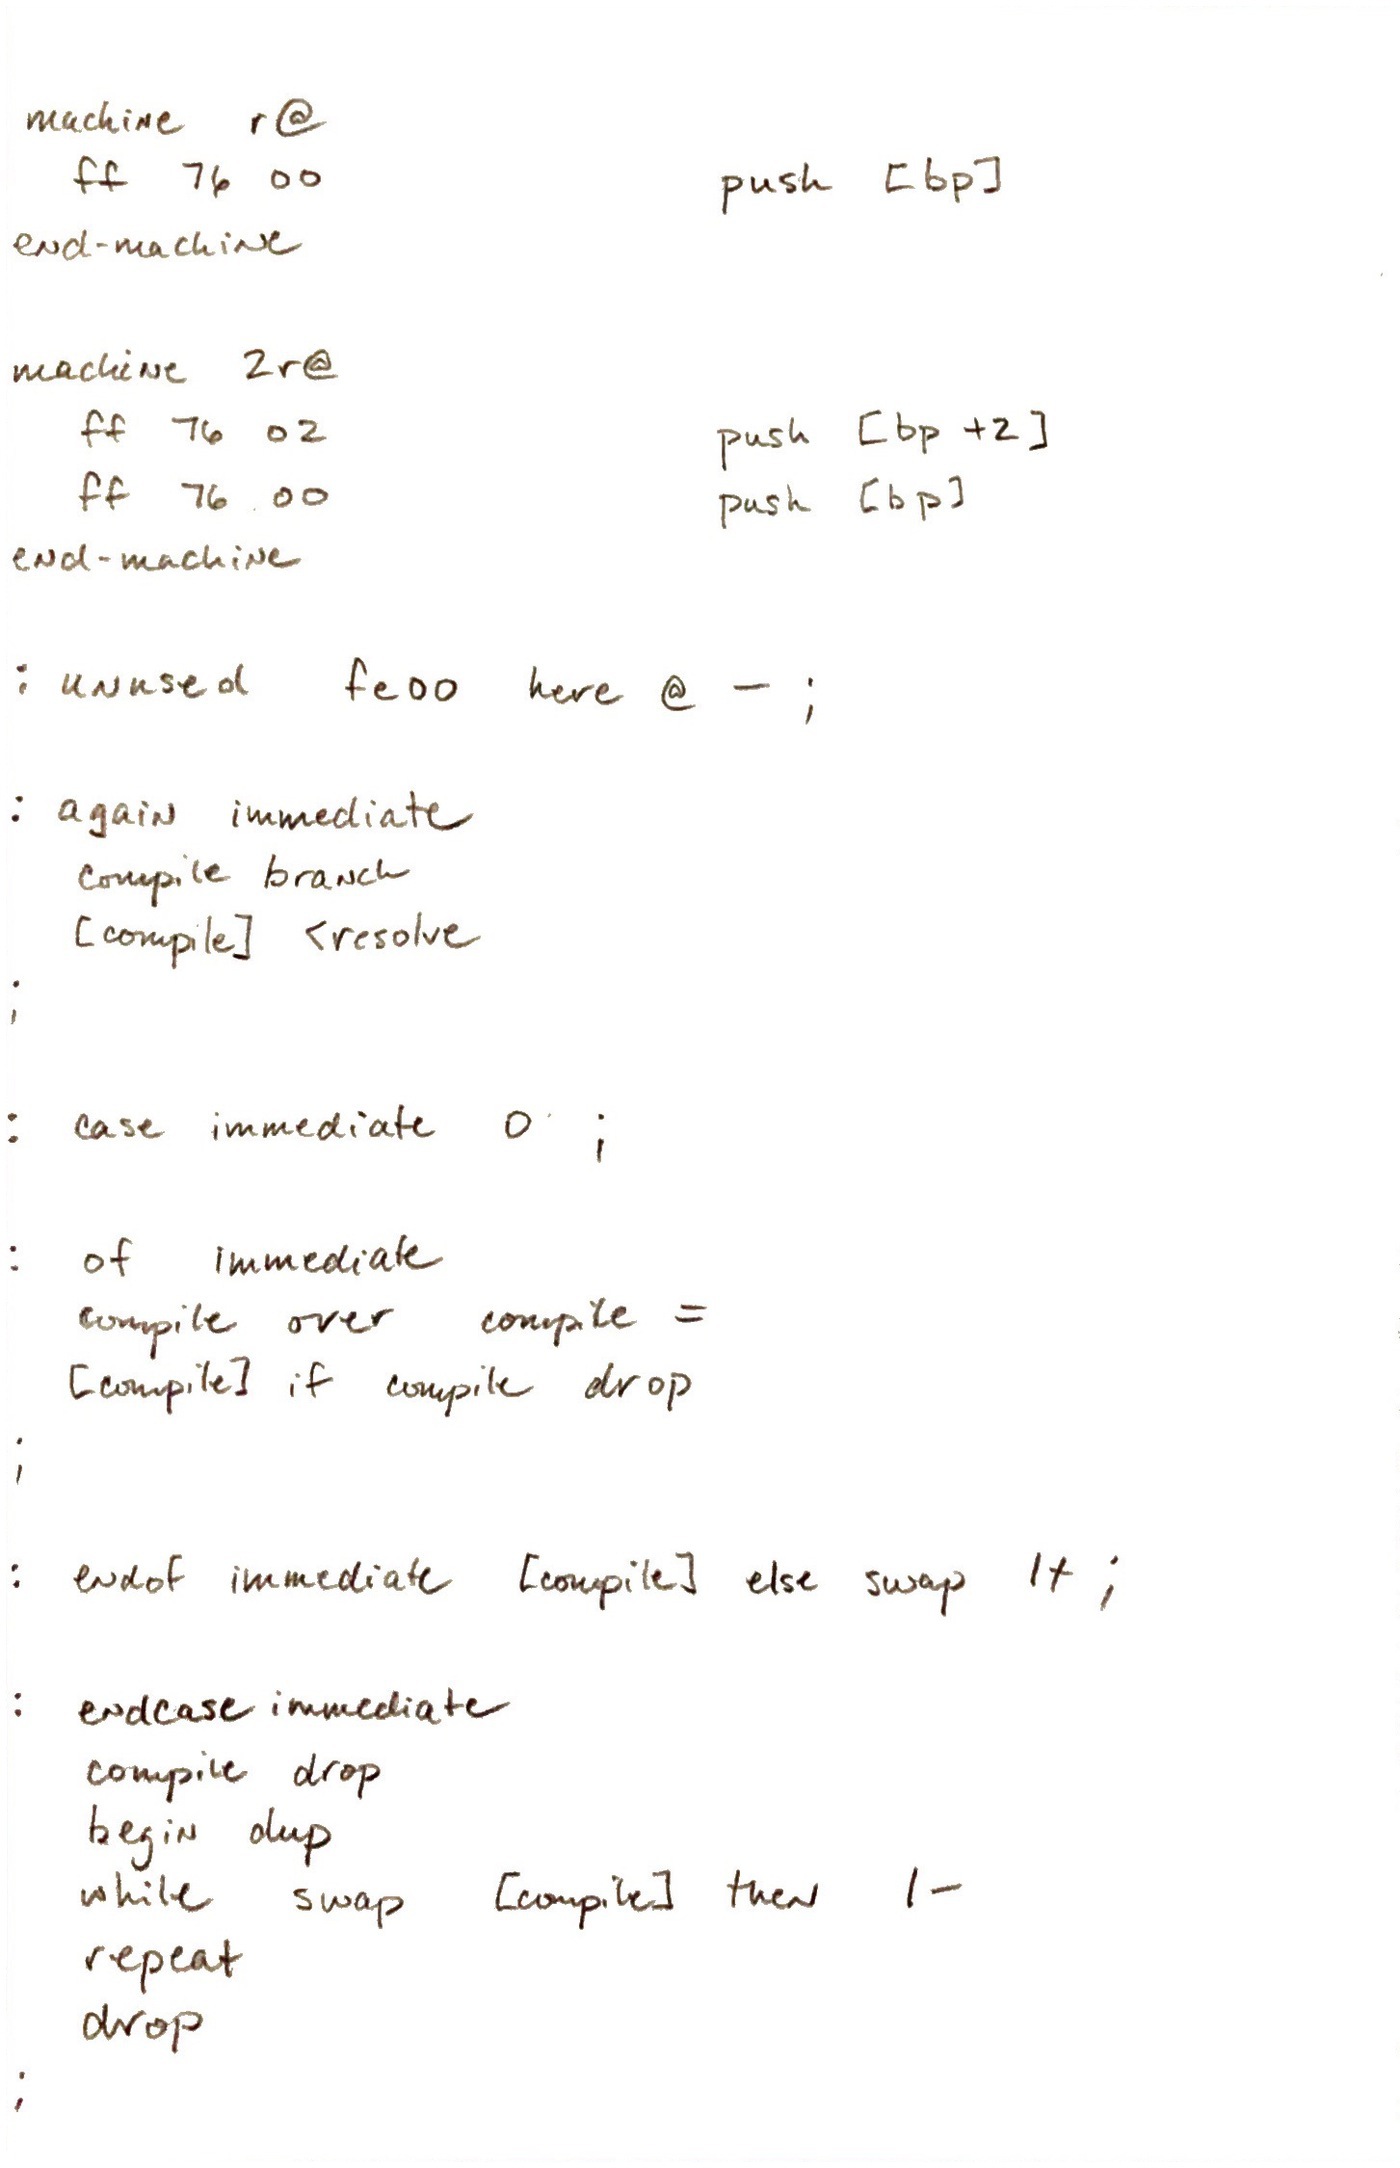 machine r@
ff 76 00 push [bp]
end-machine
machine 2r@
ff 76 02 push [bp +2]
ff 76 00 push [bp]
end-machine
: unused fe00 here @ - ;
: again immediate
compile branch
[compile] <resolve
;
: case immediate 0 ;
: of immediate
compile over compile =
[compile] if compile drop
;
: endof immediate [compile] else swap 1+ ;
: endcase immediate
compile drop
begin dup
while swap [compile] then 1-
repeat
drop
;